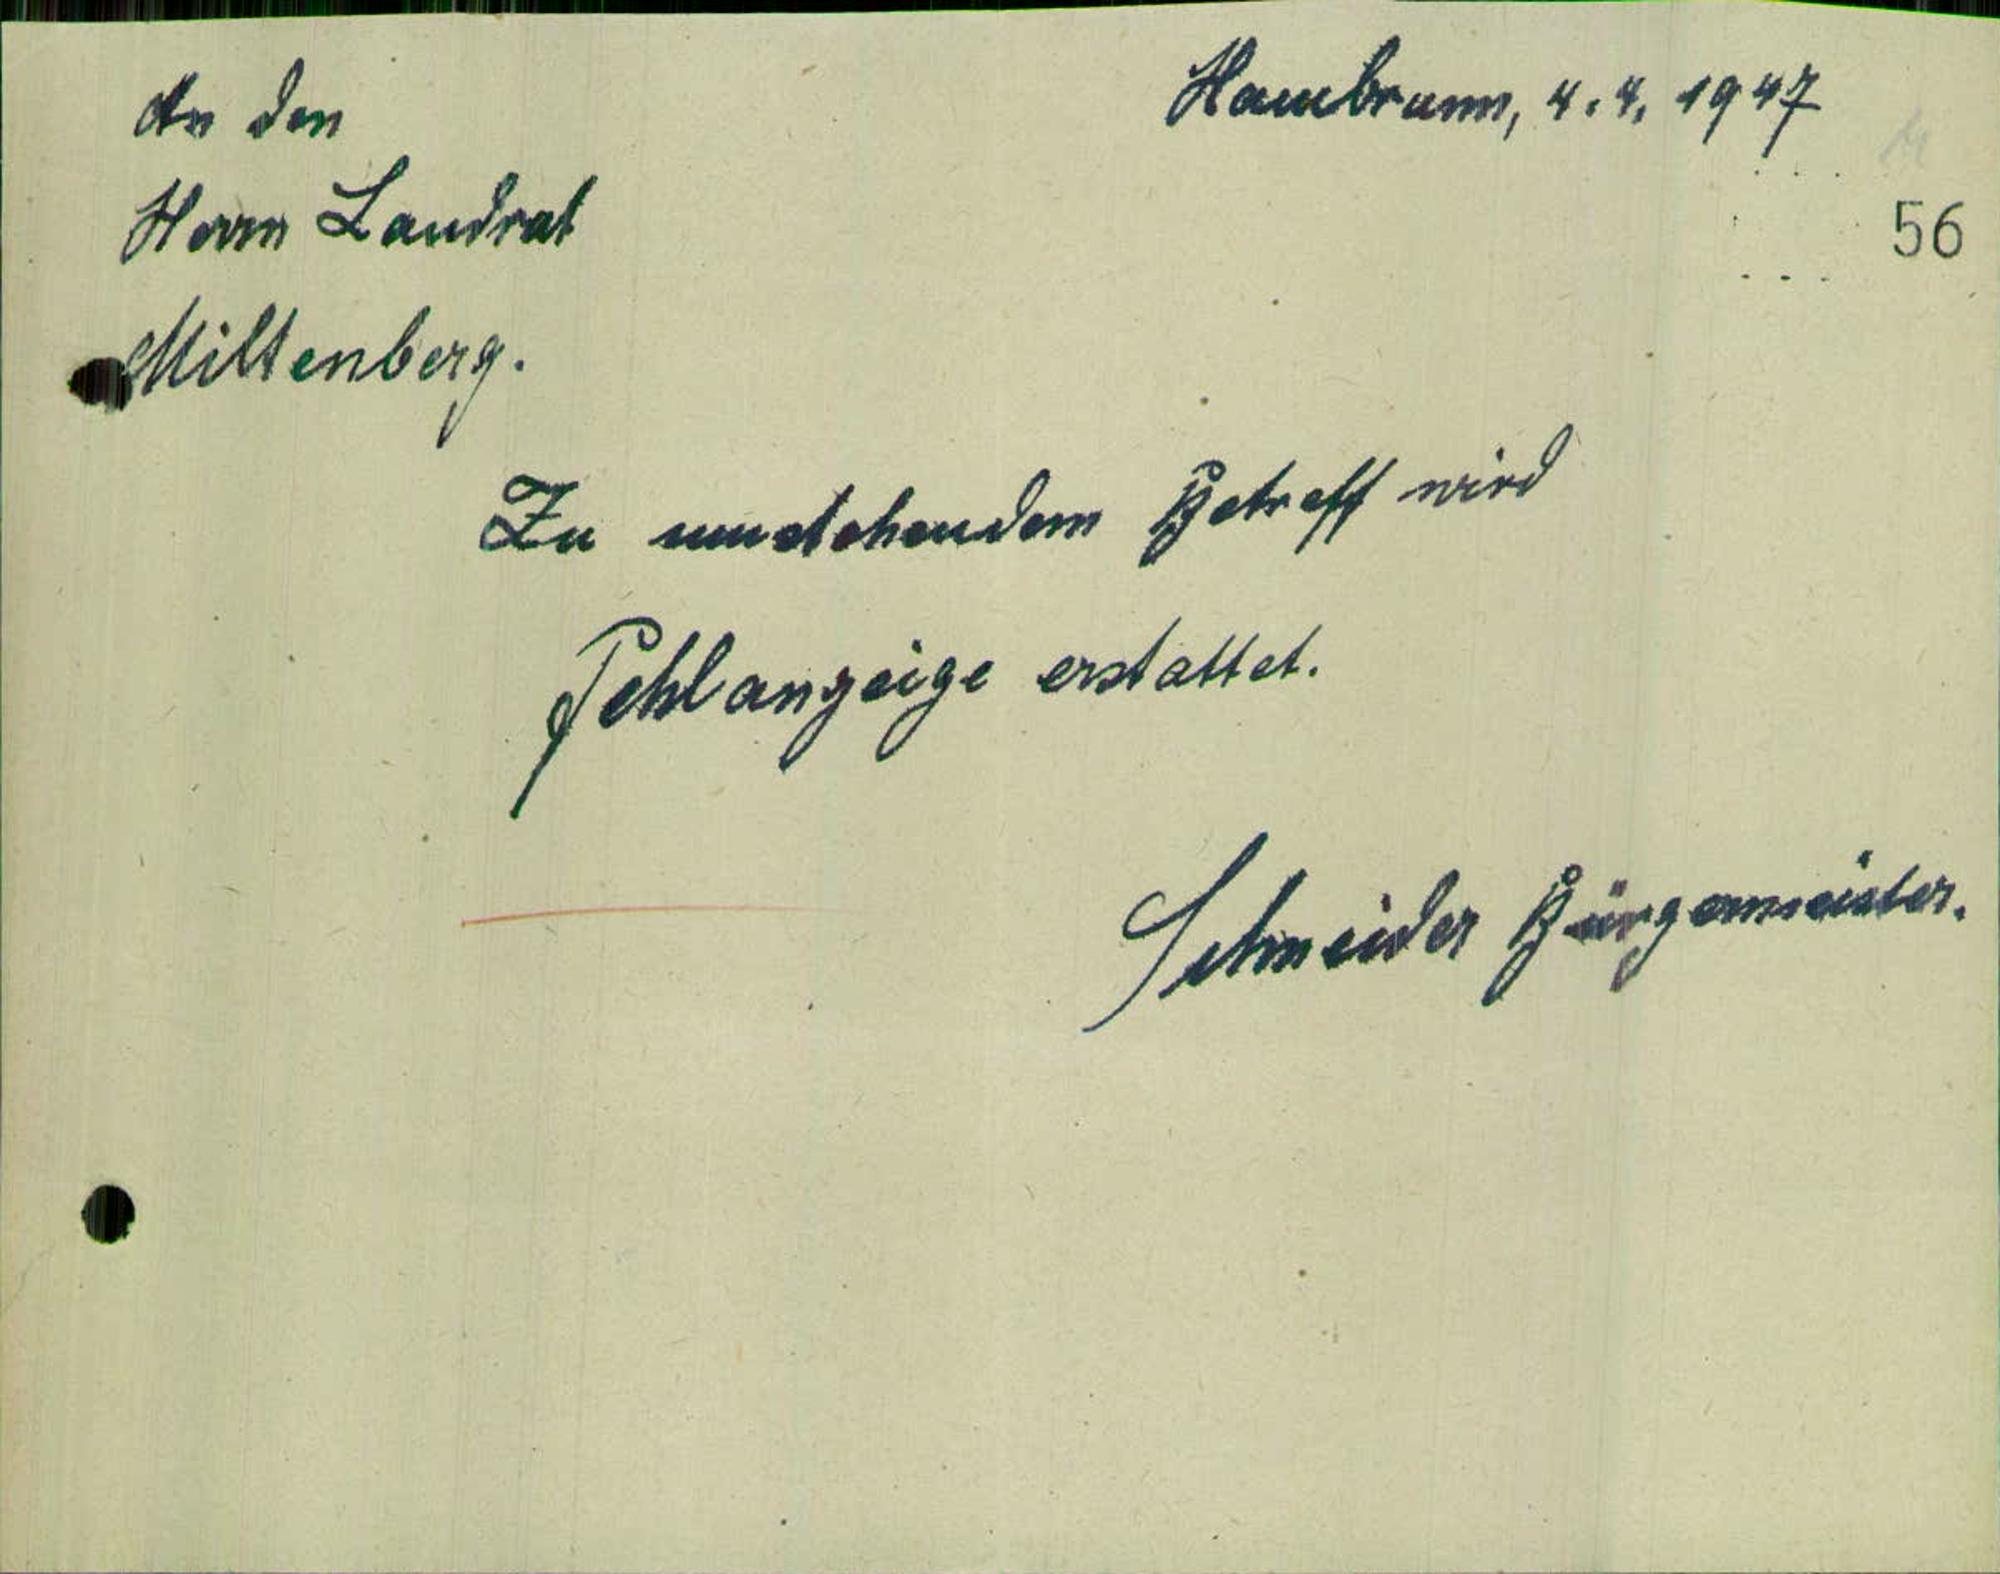 An den
Hambrunn, 4. 4. 1947
Herrn Landrat
56
Miltenberg.
Zu umstehendem Betreff wird
Fehlanzeige erstattet.
Schneider Bürgermeister.